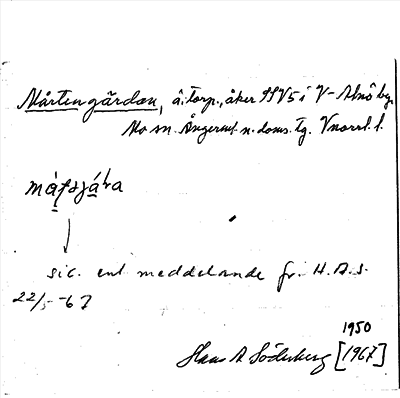 Mårtengårdan, å. torp., åker SSV5 i V-Almö by,
Mo sn. Ångerml. n. doms. tg. Vnorrl. l.
máʂʂjáɽa
sic. enl meddelande fr. H. A. S.
22/5 -67
1950
Hans A Söderberg [1967]